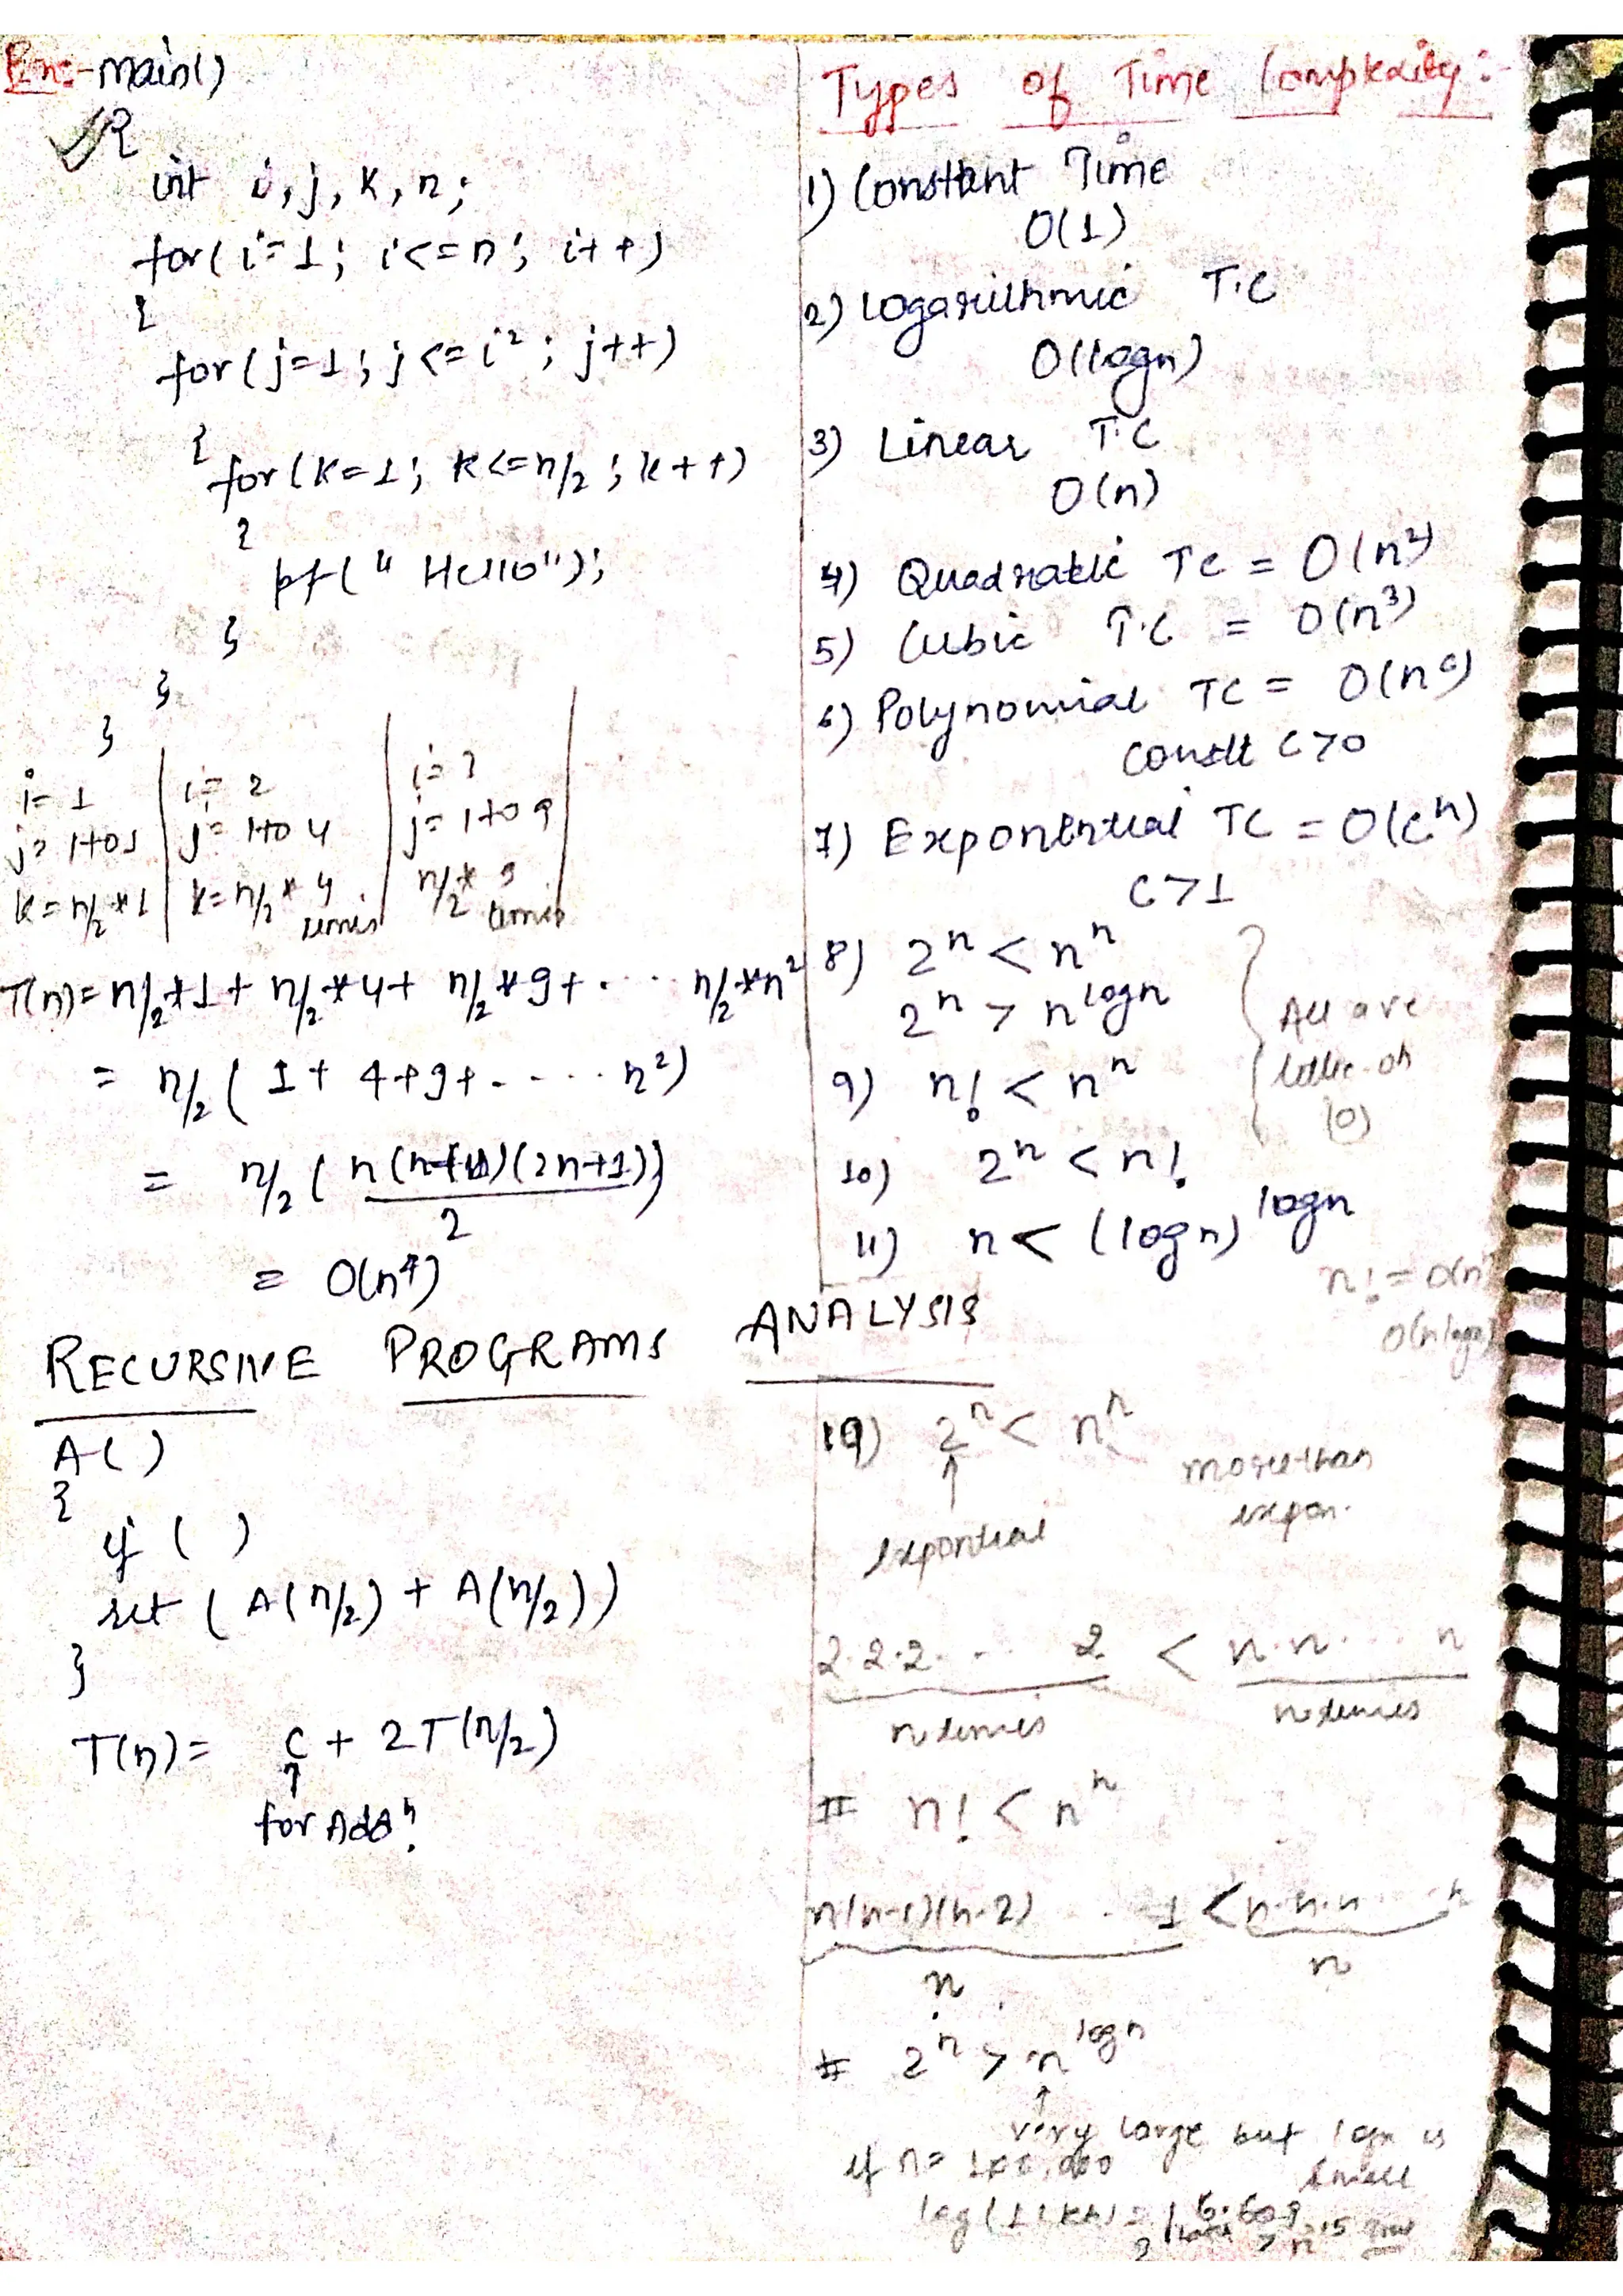 main()
{
int i, j, k, n;
for(i=1; i<=n; i++)
{
for(j=1; j<=i²; j++)
{
for(k=1; k<=n/2; k++)
{
pf(" Hello");
}
}
}
i=1 | i=2 | i=3
j=1 to 1 | j=1 to 4 | j=1 to 9
k=n/2*1 | k=n/2*4 times | n/2*9 times
T(n)=n/2*1+n/2*4+n/2*9+.... n/2*n²
= n/2(1+4+9+- .... n²)
= n/2(n(n+1)(2n+1))
2
= O(n⁴)
RECURSIVE PROGRAMS ANALYSIS
A()
{
if ( )
ret (A(n/2) + A(n/2))
}
T(n)= c + 2T(n/2)
↑
for Addⁿ
Types of Time Complexity:-
1) Constant Time
O(1)
2) Logarithmic T.C
O(logn)
3) Linear T.C
O(n)
4) Quadratic TC = O(n²)
5) Cubic T.C = O(n³)
6) Polynomial TC = O(nᶜ)
constt c>0
7) Exponential TC = O(cⁿ)
c>1
8) 2ⁿ < nⁿ
2ⁿ > n^logn
All are
little-oh
(o)
9) n! < nⁿ
10) 2ⁿ < n!
11) n < (logn)^logn
n! = O(n
O(nlogn)
2ⁿ < nⁿ
↑
more than
expon.
expontial
2.2.2. .. 2 < n.n... n
n times n times
# n! < nⁿ
n(n-1)(n-2) .. 1 < n.n.n n
n n
# 2ⁿ > n^logn
↑
very large but logn is
small
if n= 100,000